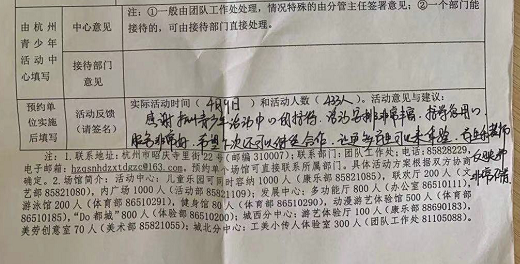 注：①一般由团队工作处处理，情况特殊的由分管主任签署意见；②一个部门能接待的，可由接待部门直接处理。
由杭州青少年活动中心填写
中心意见
接待部门意见
预约单位实施后填写
活动反馈（请签名）
实际活动时间（4月9日）和活动人数（433人）。活动意见与建议：
感谢杭州青少年活动中心的接待。活动安排非常丰富，接待
服务非常好，希望下次还可以继续合作，让更多
非常
注：1.联系地址：杭州市昭庆寺里街22号（邮编310007）；联系部门：团队工作处；电话：85828229，
电子邮箱：hzqsnhdzxtdzzc@163.com。预约单一场馆可直接联系所属部门，具体活动方案根据双方协商
确定。2.场馆简介：活动中心：儿童乐园可同时容纳1000人（康乐部85821085），联欢厅200人（文
艺部85821080），内广场1000人（活动部85821109）；发展中心：多功能厅800人（办公室86510111），
游泳馆200人（体育部86510291），健身馆80人（体育部86510290），动漫游艺体验馆500人（体验部
86510185），“Do都城”800人（体验部86510200）；城西分中心：游艺体验厅100人（康乐部88690183），
美劳创意室70人（美术部85821055）；城北分中心：工美小传人体验室300人（团队工作处81105088）。